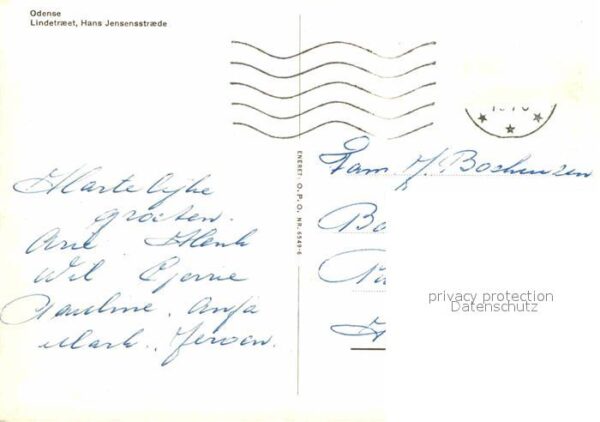 Odense
Lindetræet, Hans Jensensstræde
Hartelijke
groeten.
Arie Henk
Wil Gerrie
Pauline. Anja
Mark.. Jeroen.
ENERET: O.P.O. NR. 6549-6
Fam
Bo
privacy protection
Datenschutz